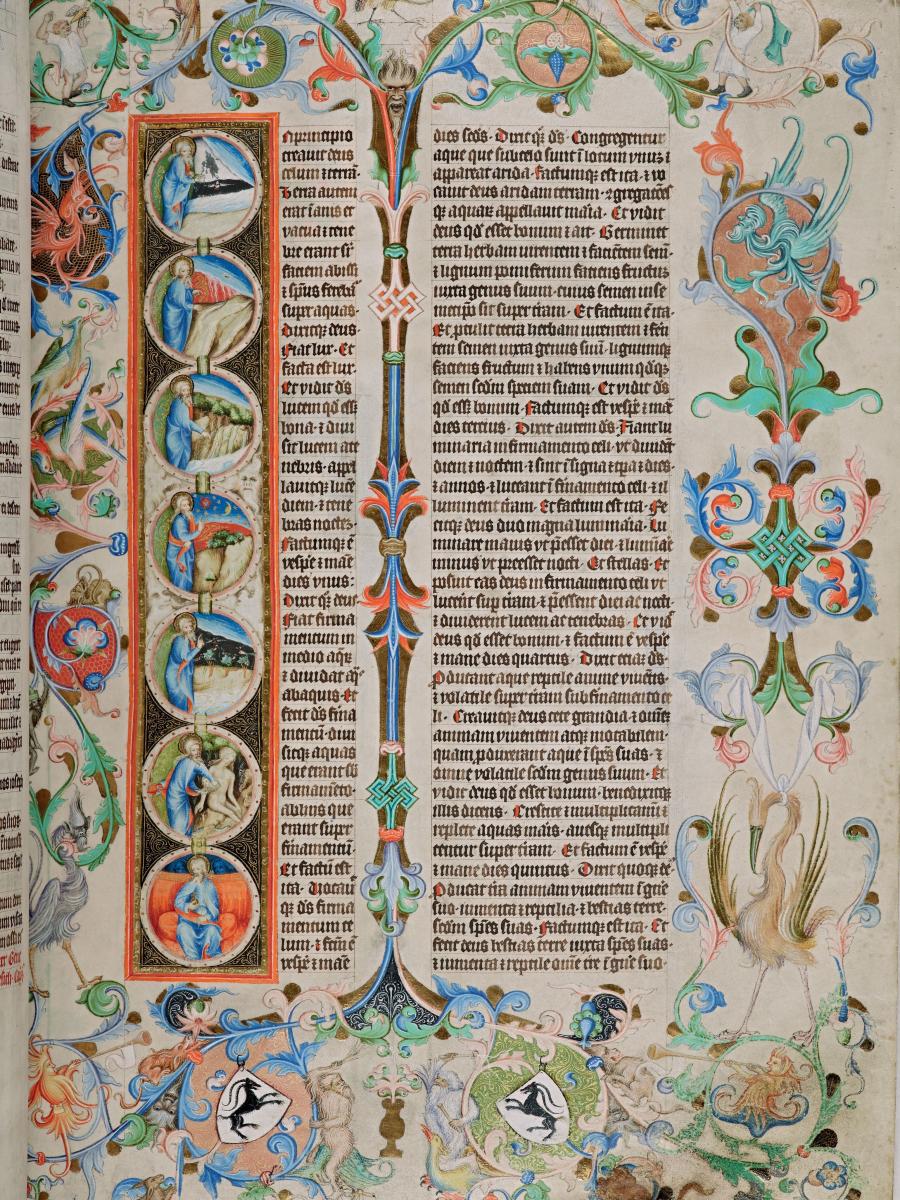 n principio
creavit deus
celum ⁊ terrā·
Terra autem
erat īanis et
vacua ⁊ tene
bre erant sr̄
faciem abissi
⁊ sp̄us ferebr̄
super aquas·
Dixitqꝫ deus
Fiat lux· Et
facta est lux·
Et vidit dr̄s
lucem qd̄ esset
bona· ⁊ divi
sit lucem a te
nebris· appel
lavitqꝫ lucē
diem· ⁊ tene
bras noctē·
Factumqꝫ ē
vesꝑe ⁊ mane
dies vnus·
Dixit qꝫ deus
Fiat firma
mentum in
medio aqꝫ
⁊ dividat aq̄s
ab aquis· Et
fecit ds̄ firma
mentū· divi
sitqꝫ aquas
que erant sb
firmamēto·
ab hiis que
erant super
firmamentū
Et factū est
ita· Vocavit
qꝫ ds̄ firma
mentum ce
lum· ⁊ fctm̄ ē
vesꝑe ⁊ mane
dies scd̄s· Dixit qꝫ ds̄· Congregentur
aque que sub celo sunt ī locum vnuꝫ ⁊
appareat arida· Factumqꝫ est ita· ⁊ vo
cavit deus aridam terram· ⁊ gregacōes
qꝫ aquaꝝ appellavit maria· Et vidit
deus qd̄ esset bonum ⁊ ait· Germinet
terra herbam virentem ⁊ faciētem semē·
⁊ lignum pomiferum faciens fructuꝫ
iuxta genus suum· cuius semen in se
metipō sit super t̄ram· Et factum ē ita·
Et ꝓtulit terra herbam virentem ⁊ feren
tem semen iuxta genus suū· lignumqꝫ
faciens fructum ⁊ habens vnum qd̄qꝫ
semen scd̄m speciem suam· Et vidit ds̄
qd̄ esset bonum· Factumqꝫ est vesꝑe ⁊ mane
dies tercius· Dixit autem ds̄· Fiant lu
minaria in firmamento celi· vt dividāt
diem ⁊ noctem· ⁊ sint ī signa ⁊ tꝑa ⁊ dies·
⁊ annos· ⁊ luceant ī firmamento celi· ⁊ il
luminent t̄ram· Et factum est ita· Fe
citqꝫ deus duo magna luminaria· Lu
minare maius vt ꝑesset diei· ⁊ luminare
minus vt preesset nocti· Et stellas· Et
posuit eas deus in firmamento celi vt
lucerēt suꝑ t̄ram· ⁊ p̄essent diei ac nocti
⁊ dividerent lucem ac tenebras· Et vidit
deus qd̄ esset bonum· ⁊ factum ē vesꝑe
⁊ mane dies quartus· Dixit eciā ds̄·
Producant aque reptile anime viventis
⁊ volatile super t̄ram sub firmamento ce
li· Creavitqꝫ deus cete grandia· ⁊ omnē
animam viventem atqꝫ motabilem·
quam produxerant aque ī spēs suas· ⁊
omne volatile scd̄m genus suum· Et
vidit deus qd̄ esset bonum· benedixitqꝫ
illis dicens· Crescite ⁊ multiplicamī ⁊
replete aquas maris· avesqꝫ multipli
centur super t̄ram· Et factum ē vesꝑe
⁊ mane dies quintus· Dixit quoqꝫ ds̄·
Producat t̄ra animam viventem ī gn̄e
suo· iumenta ⁊ reptilia· ⁊ bestias terre·
scd̄m spēs suas· Factumqꝫ est ita· Et
fecit deus bestias terre iuxta spēs suas·
⁊ iumenta ⁊ reptile omē t̄re ī gn̄e suo·